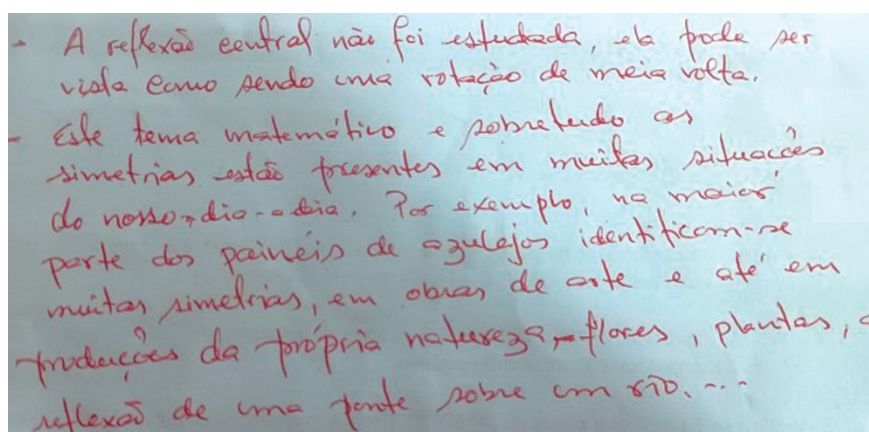 - A reflexão central não foi estudada, ela pode ser
vista como sendo uma rotação de meia volta.
- Este tema matemático e sobretudo as
simetrias estão presentes em muitas situações
do nosso dia-a-dia. Por exemplo, na maior
parte dos painéis de azulejos identificam-se
muitas simetrias, em obras de arte e até em
produções da própria natureza - flores, plantas, a
reflexão de uma ponte sobre um rio. ...